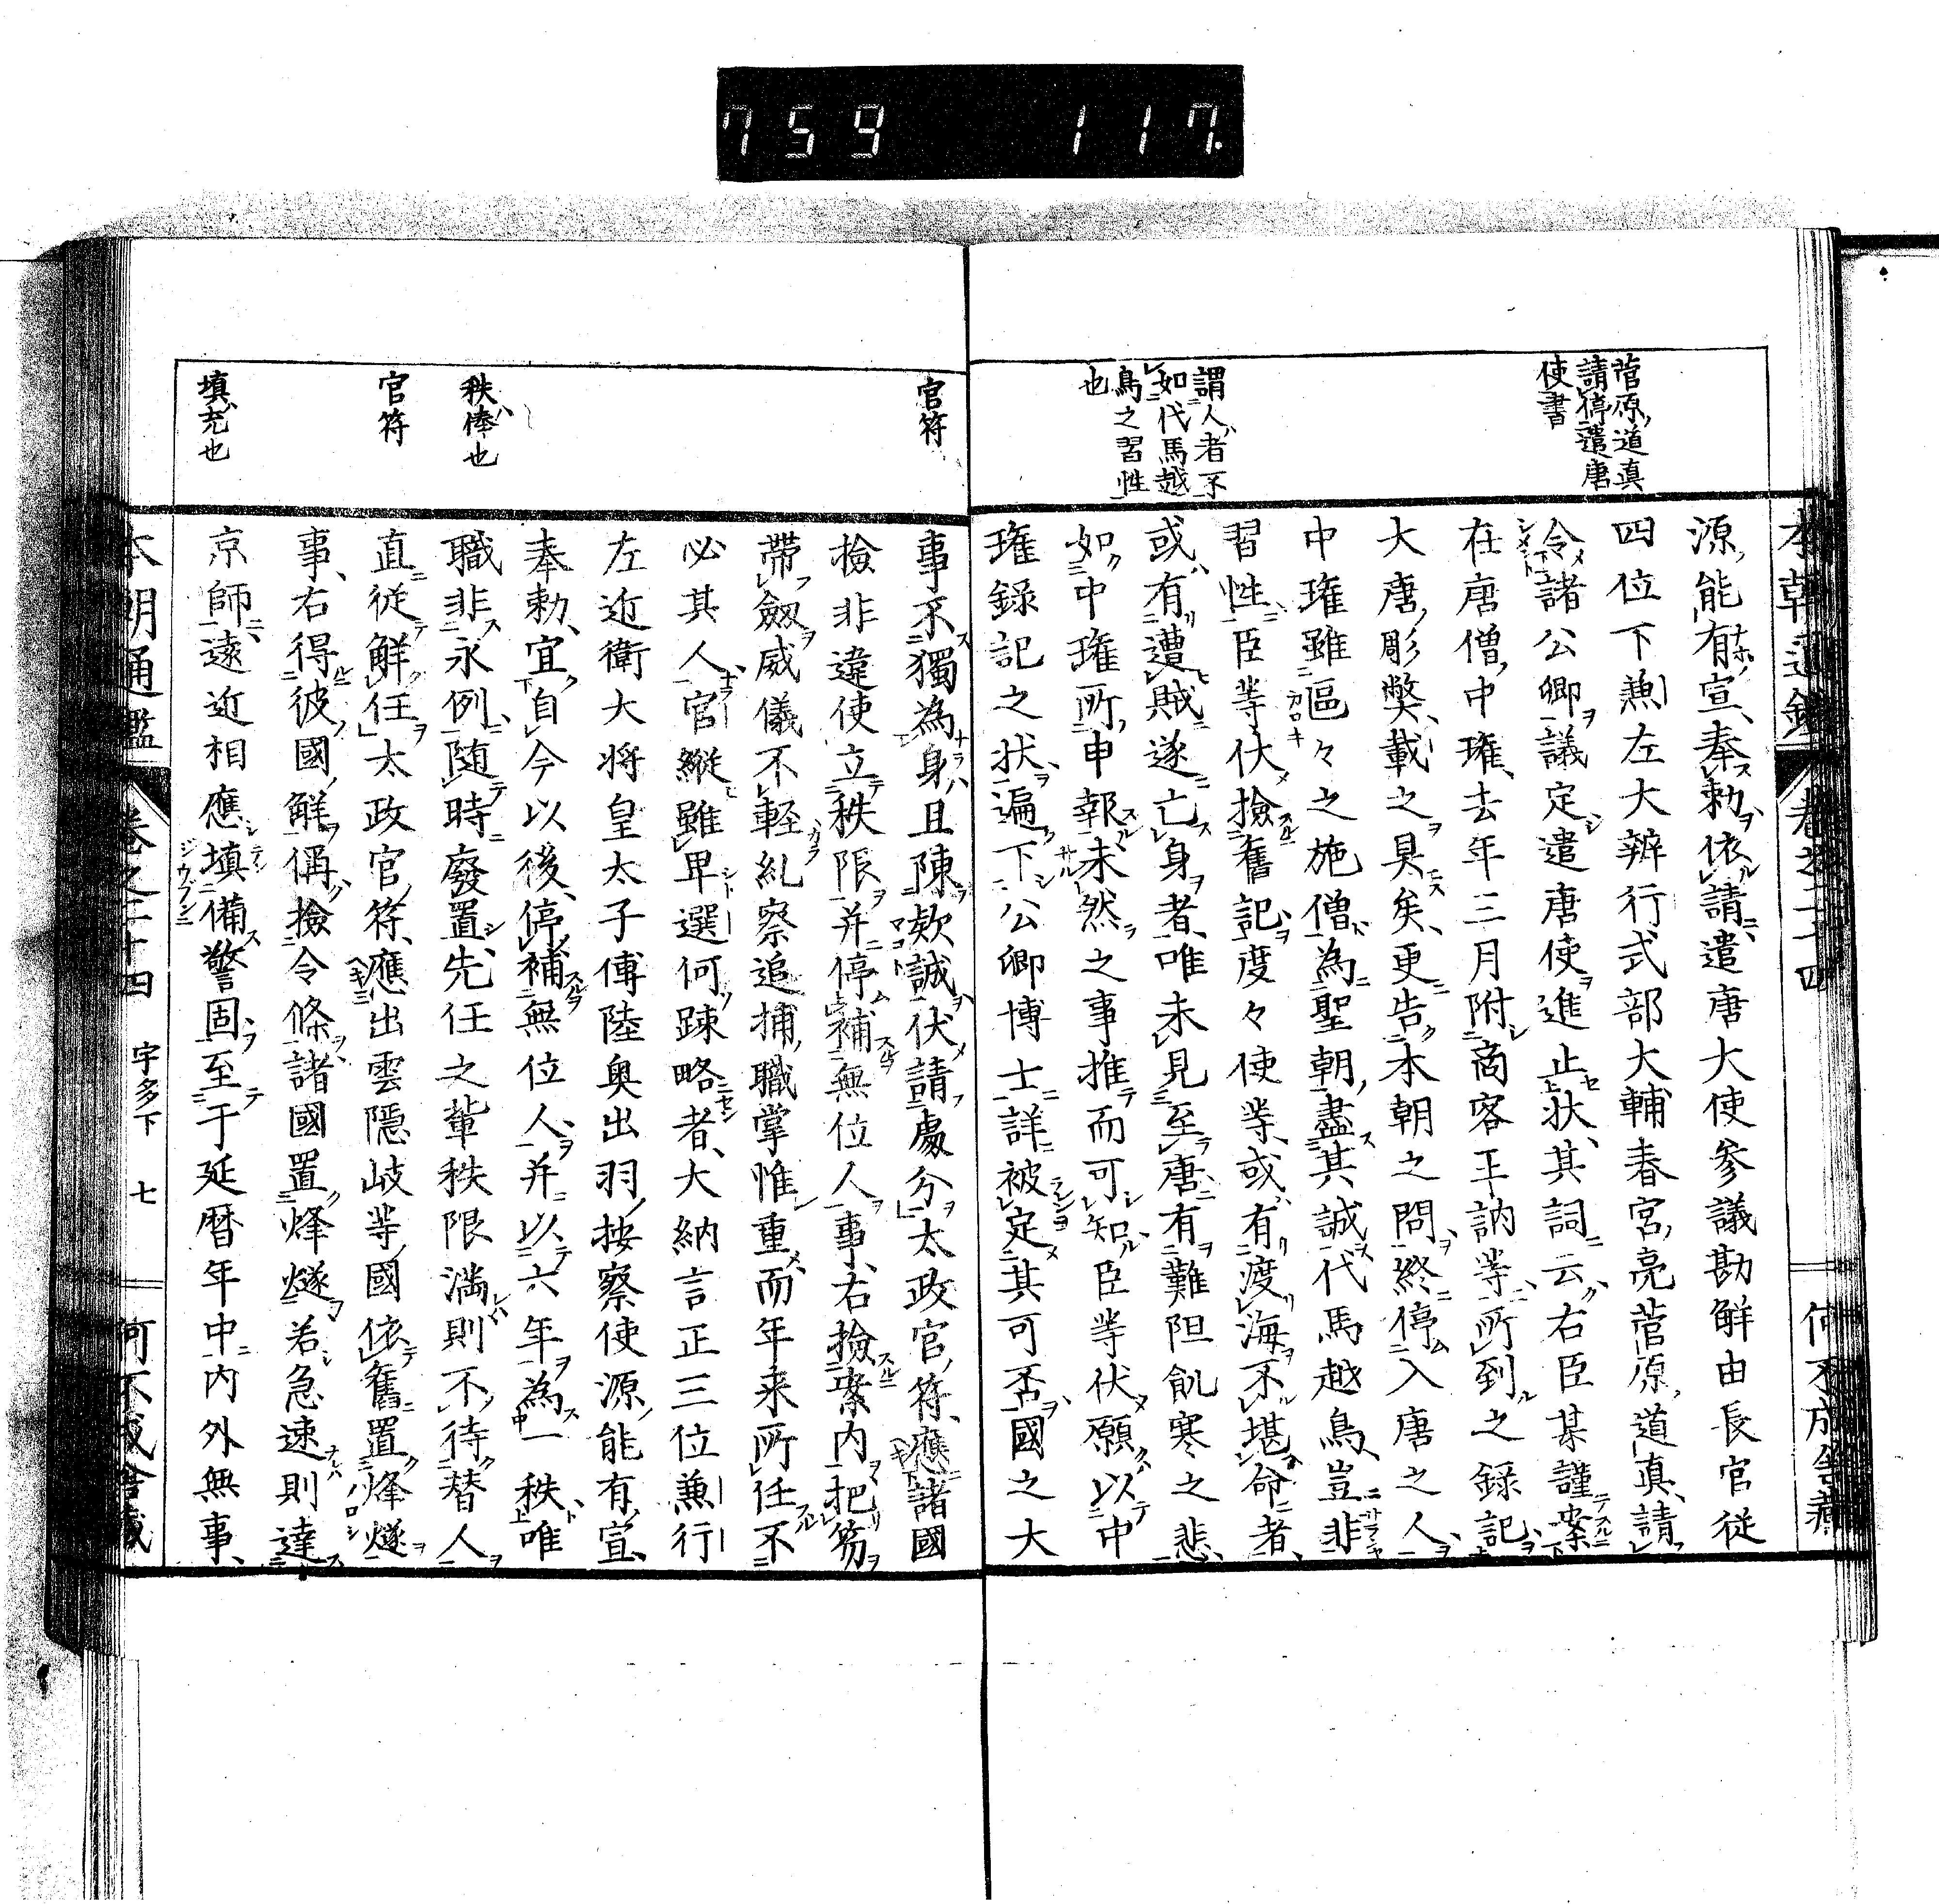 759 117.
菅原道真
請停遣唐
使書
謂人者不
如代馬越
鳥之習性
也
源能有宣奉勅依請遣唐大使参議勘解由長官従
四位下兼左大辨行式部大輔春宮亮菅原道真請
令諸公卿議定遣唐使進止状其詞云右臣某謹案
在唐僧中瓘去年三月附商客王訥等所到之録記
大唐彫弊載之具矣更告本朝之問終停入唐之人
中瓘雖區々之施僧為聖朝盡其誠代馬越鳥豈非
習性臣等伏撿舊記度々使等或有渡海不堪命者
或有遭賊遂亡身者唯未見至唐有難阻飢寒之悲
如中瓘所申報未然之事推而可知臣等伏願以中
瓘録記之状遍下公卿博士詳被定其可否國之大
官符
秩俸也
官符
填充也
事不獨為身且陳欵誠伏請處分太政官符應諸國
撿非違使立秩限并停補無位人事右撿案内把笏
帶劔威儀不輕糺察追捕職掌惟重而年来所任不
必其人官縱雖卑選何踈略者大納言正三位兼行
左近衛大将皇太子傅陸奥出羽按察使源能有宣
奉勅宜自今以後停補無位人并以六年為一秩唯
職非永例随時廢置先任之輩秩限満則不待替人
直従解任太政官符應出雲隱岐等國依舊置烽燧
事右得彼國解偁撿令條諸國置烽燧若急速則達
京師遠近相應填備警固至于延暦年中内外無事
本朝通鑑 卷之二十四 宇多下 七